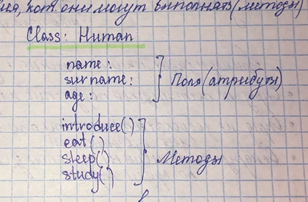 кот. они могут выполнять (методы)
Class: Human
name:
surname:
age:
Поля (атрибуты)
introduce()
eat()
sleep()
study()
Методы